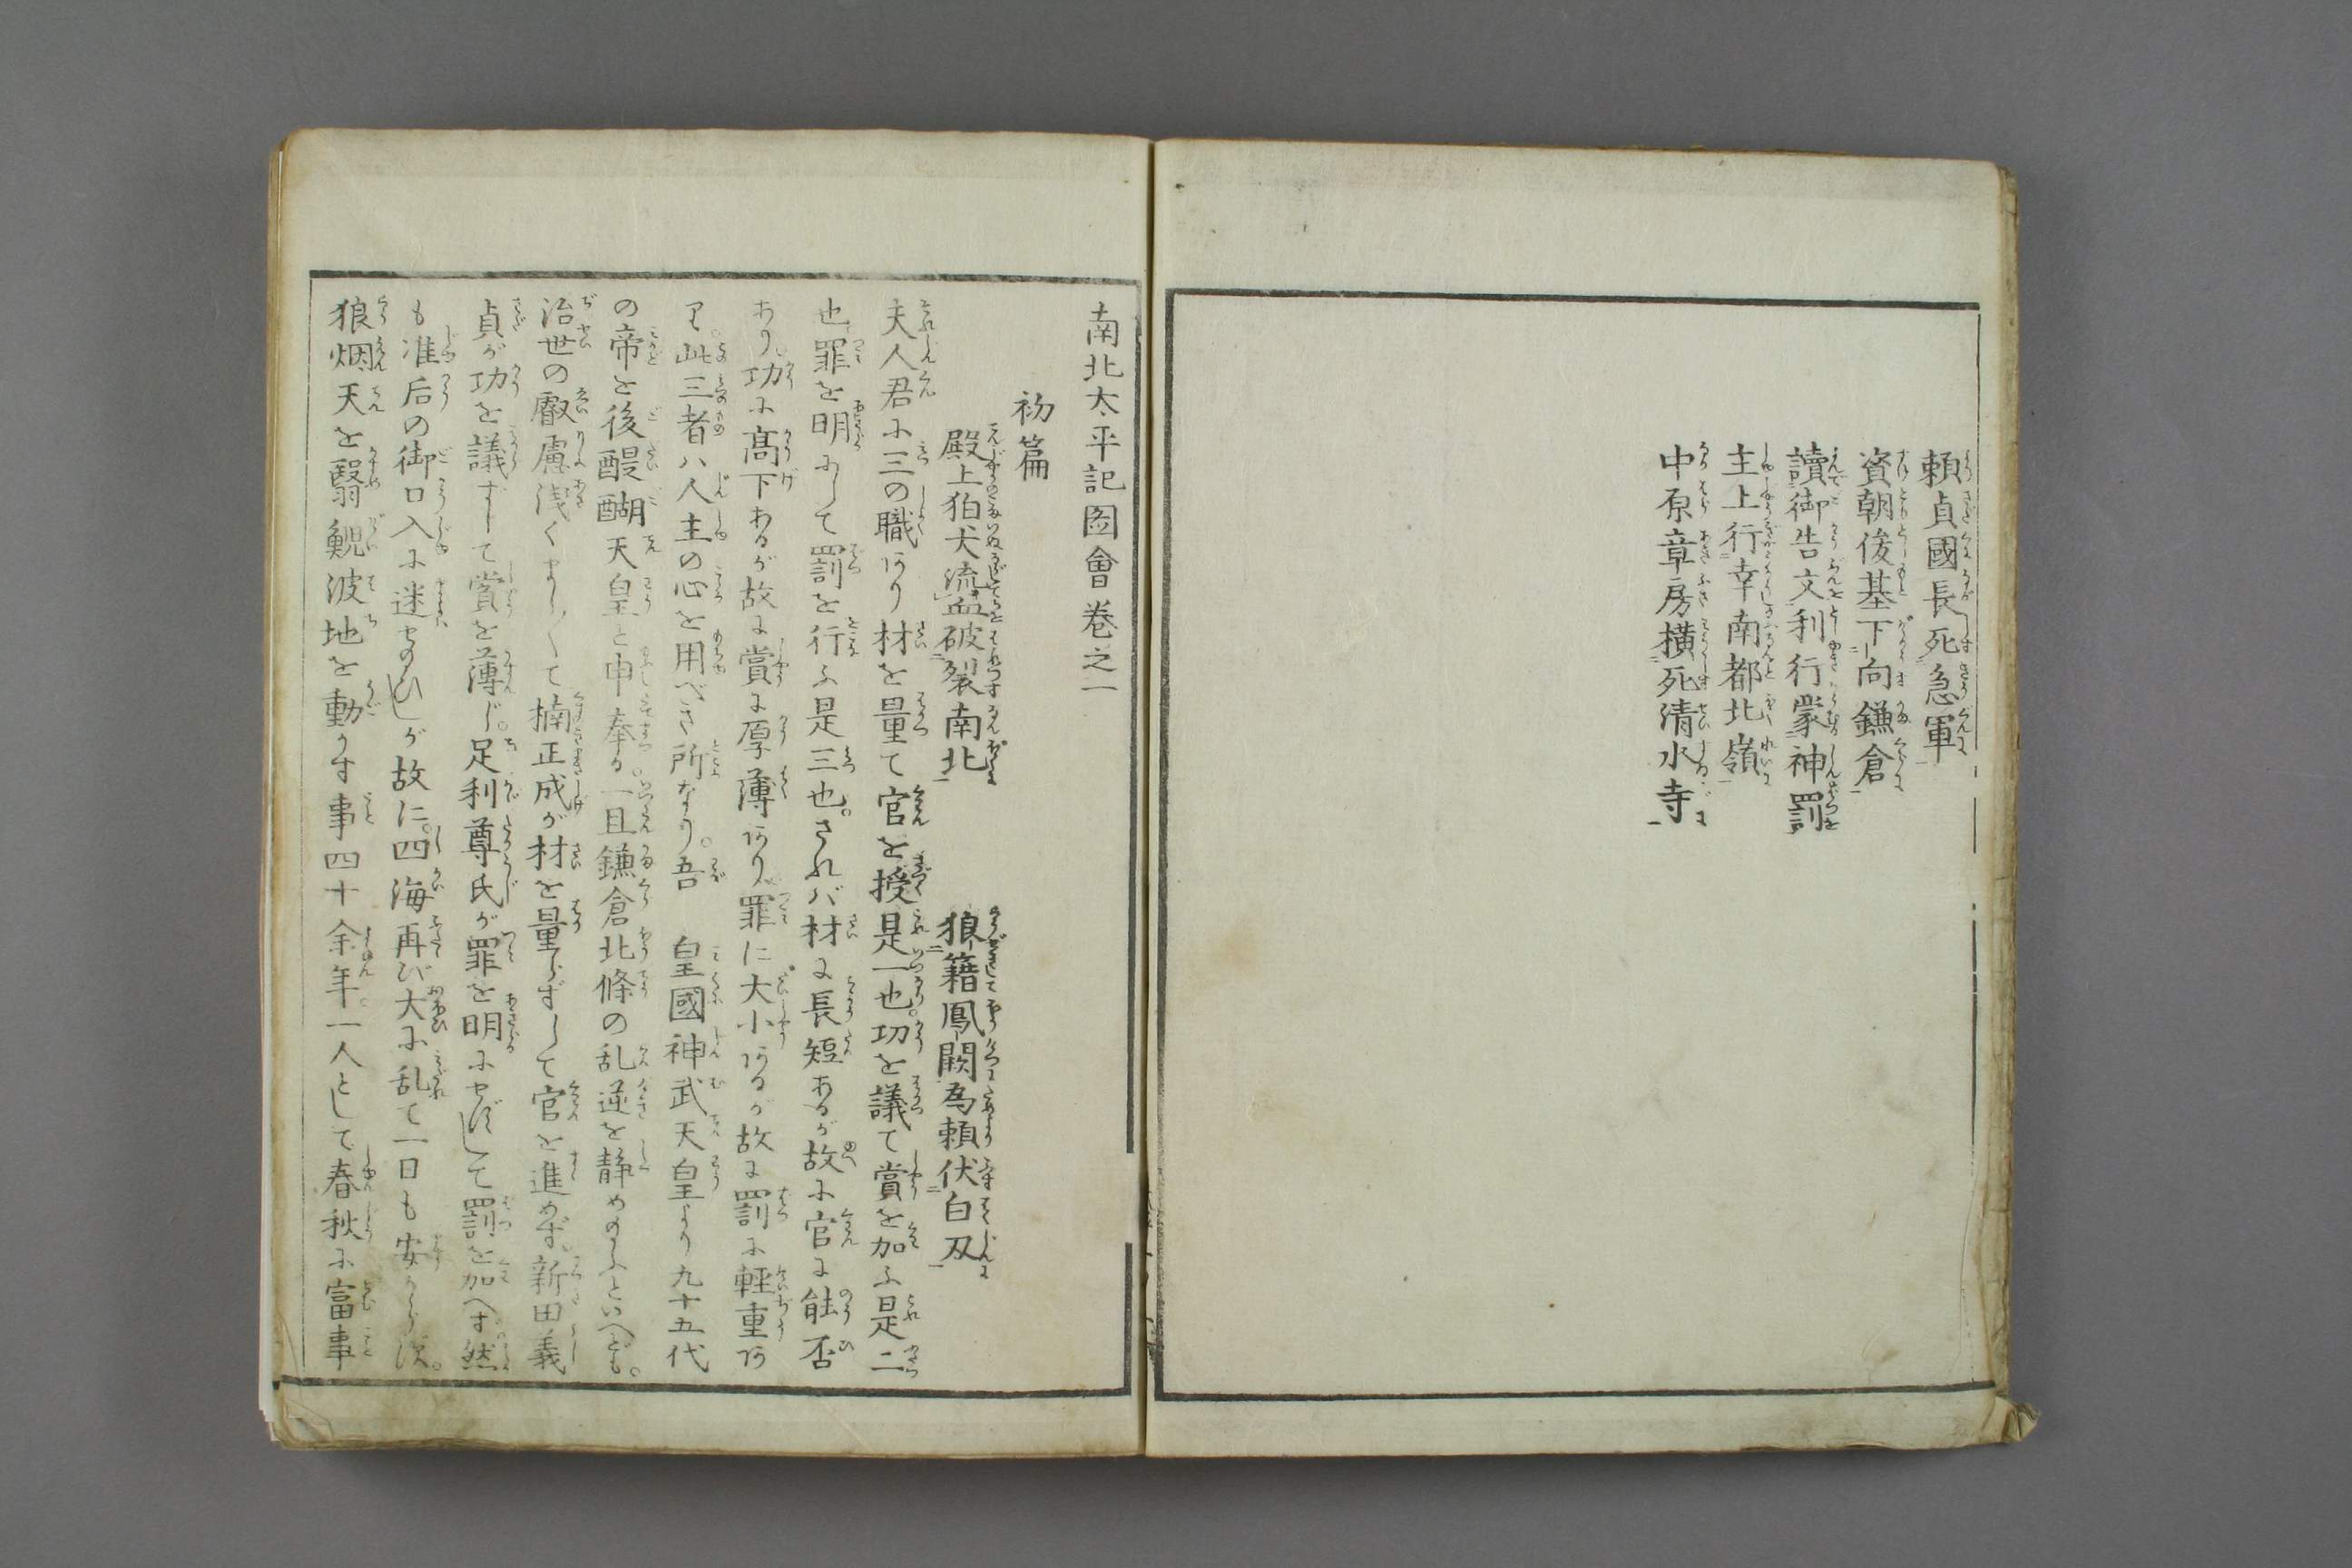 頼貞國長死急軍
資朝俊基下向鎌倉
讀御告文利行蒙神罰
主上行幸南都北嶺
中原章房横死清水寺
南北太平記圖會巻之一
初篇
殿上狛犬流血破裂南北　狼籍鳳闕為頼伏白刃
夫人君に三の職あり材を量て官を授是一也。功を議て賞を加ふ是二
也罪を明にして罰を行ふ是三也。されバ材に長短あるが故に官に能否
あり。功に髙下あるが故に賞に厚薄あり罪に大小あるが故に罰に軽重あ
り。此三者ハ人主の心を用べき所なり。吾　皇國神武天皇より九十五代
の帝を後醍醐天皇と申奉る。一旦鎌倉北條の乱逆を静めのふといへども。
治世の叡慮浅くまし〳〵て楠正成が材を量らずして官を進めず新田義
貞が功を議ずして賞を薄じ。足利尊氏が罪を明にせずして罰を加へす。然
も准后の御口入に迷せのひしが故に。四海再び大に乱て一日も安からず。
狼烟天を翳鯢波地を動かす事四十余年。一人として春秋に富事